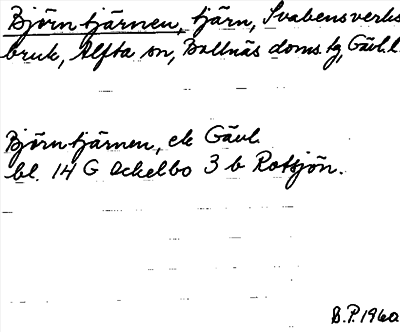 Björntjärnen, tjärn, Svabensverks
bruk, Alfta sn, Bollnäs doms. tg, Gävl. l.
Björntjärnen, ek Gävl.
bl. 14 G Ockelbo 3 b Rotsjön.
B.P. 1960